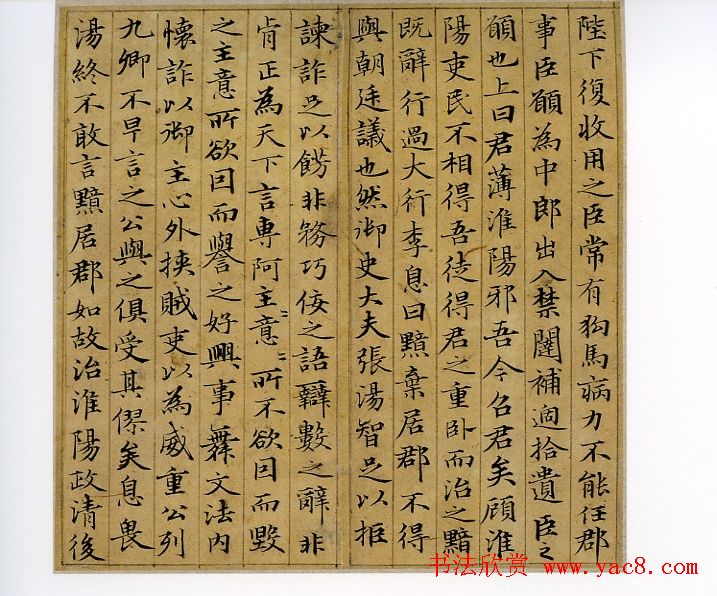 陛下復收用之臣常有狗馬病力不能任郡
事臣願為中郎出入禁闥補過拾遺臣之
願也上曰君薄淮陽邪吾今召君矣顧淮
陽吏民不相得吾徒得君之重卧而治之黯
既辭行過大行李息曰黯棄居郡不得
與朝廷議也然御史大夫張湯智足以拒
諫詐足以餝非務巧佞之語辯數之辭非
肯正為天下言專阿主意〻〻所不欲因而毀
之主意所欲因而譽之好興事舞文法内
懷詐以御主心外挾賊吏以為威重公列
九卿不早言之公與之俱受其僇矣息畏
湯終不敢言黯居郡如故治淮陽政清後
书法欣赏 www.yac8.com